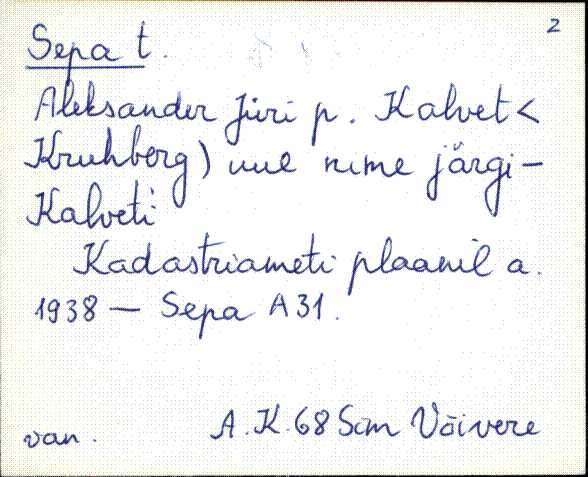 2
Sepa t.
Aleksander Jüri p. Kalvet <
Kruhberg) uue nime järgi -
Kalveti
Kadastriameti plaanil a.
1938 — Sepa A31.
van. A.K. 68 Sim Võivere